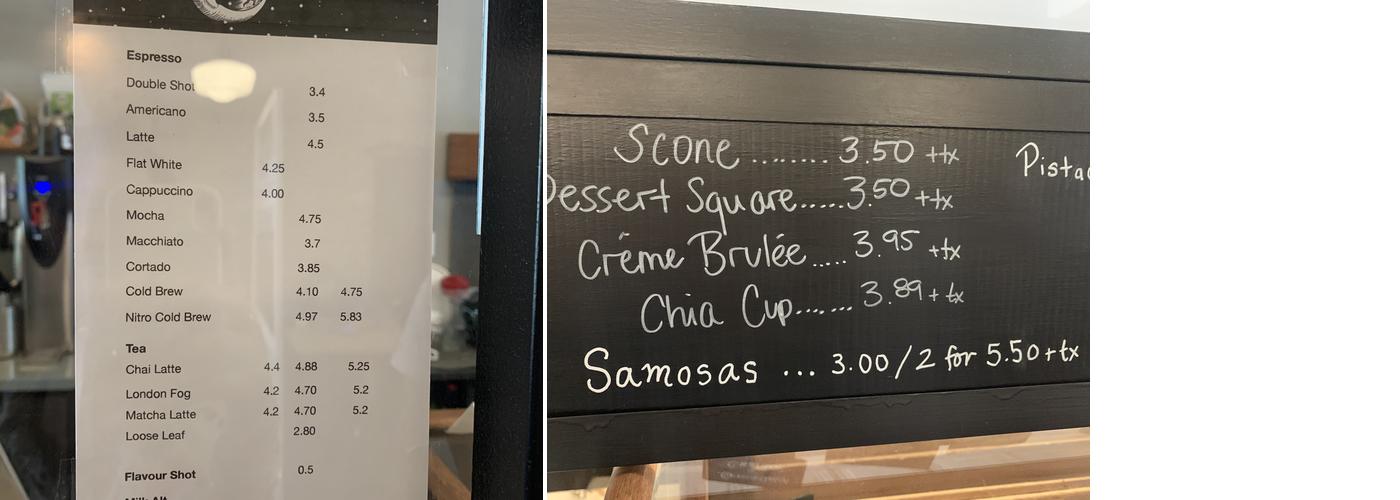 Espresso
Double Shot 3.4
Americano 3.5
Latte 4.5
Flat White 4.25
Cappuccino 4.00
Mocha 4.75
Macchiato 3.7
Cortado 3.85
Cold Brew 4.10 4.75
Nitro Cold Brew 4.97 5.83
Tea
Chai Latte 4.4 4.88 5.25
London Fog 4.2 4.70 5.2
Matcha Latte 4.2 4.70 5.2
Loose Leaf 2.80
Flavour Shot 0.5
Scone ........ 3.50 +tx
Dessert Square.....3.50 +tx
Créme Brulée ..... 3.95 +tx
Chia Cup....... 3.89 + tx
Samosas ... 3.00/2 for 5.50 + tx